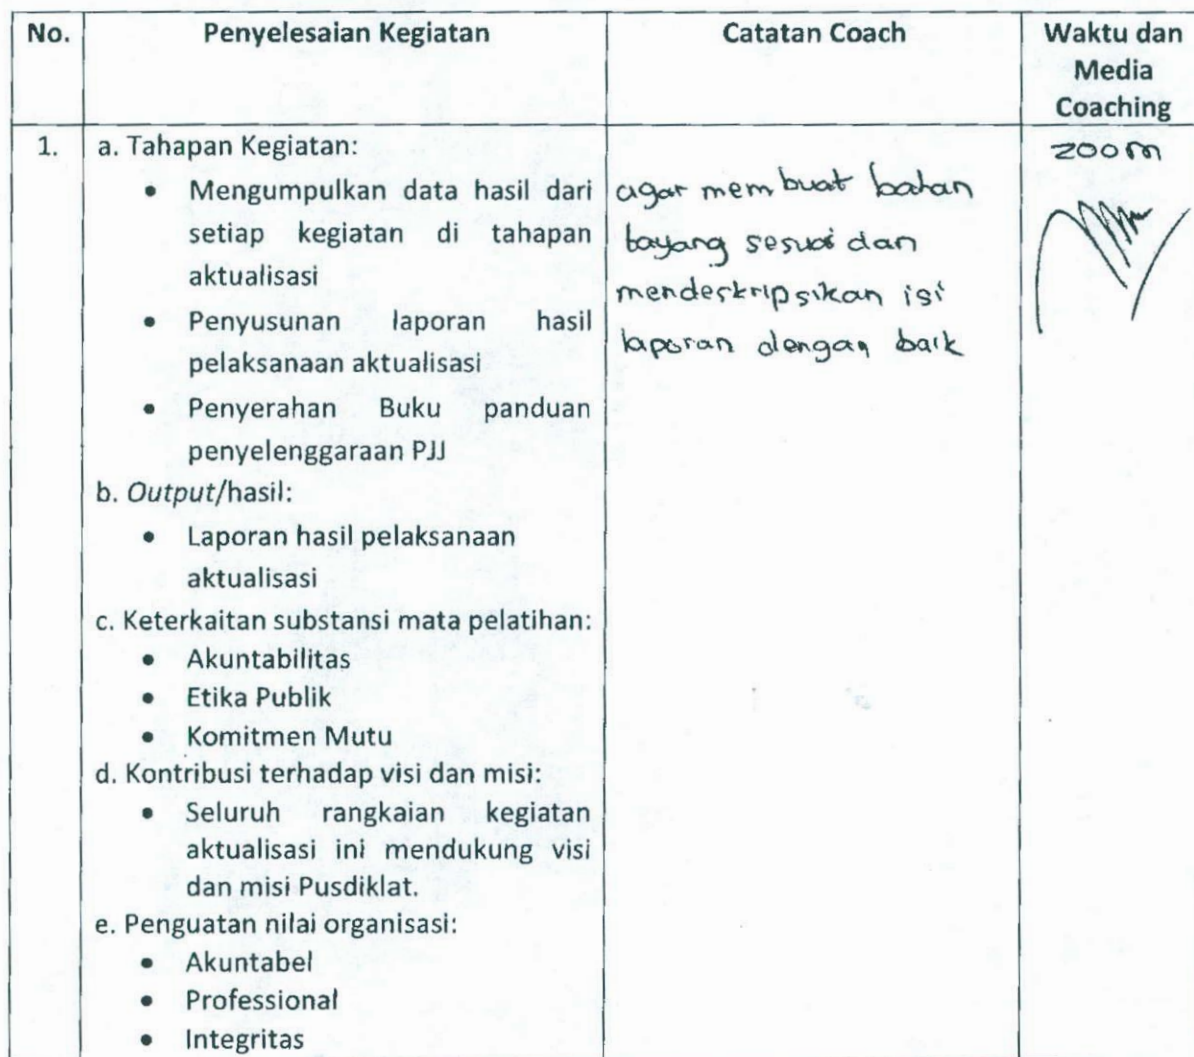 No.
Penyelesaian Kegiatan
Catatan Coach
Waktu dan
Media
Coaching
1.
a. Tahapan Kegiatan:
• Mengumpulkan data hasil dari
setiap kegiatan di tahapan
aktualisasi
• Penyusunan laporan hasil
pelaksanaan aktualisasi
• Penyerahan Buku panduan
penyelenggaraan PJJ
b. Output/hasil:
• Laporan hasil pelaksanaan
aktualisasi
c. Keterkaitan substansi mata pelatihan:
• Akuntabilitas
• Etika Publik
• Komitmen Mutu
d. Kontribusi terhadap visi dan misi:
• Seluruh rangkaian kegiatan
aktualisasi ini mendukung visi
dan misi Pusdiklat.
e. Penguatan nilai organisasi:
• Akuntabel
• Professional
• Integritas
agar membuat bahan
tayang sesuai dan
mendeskripsikan isi
laporan dengan baik
zoom